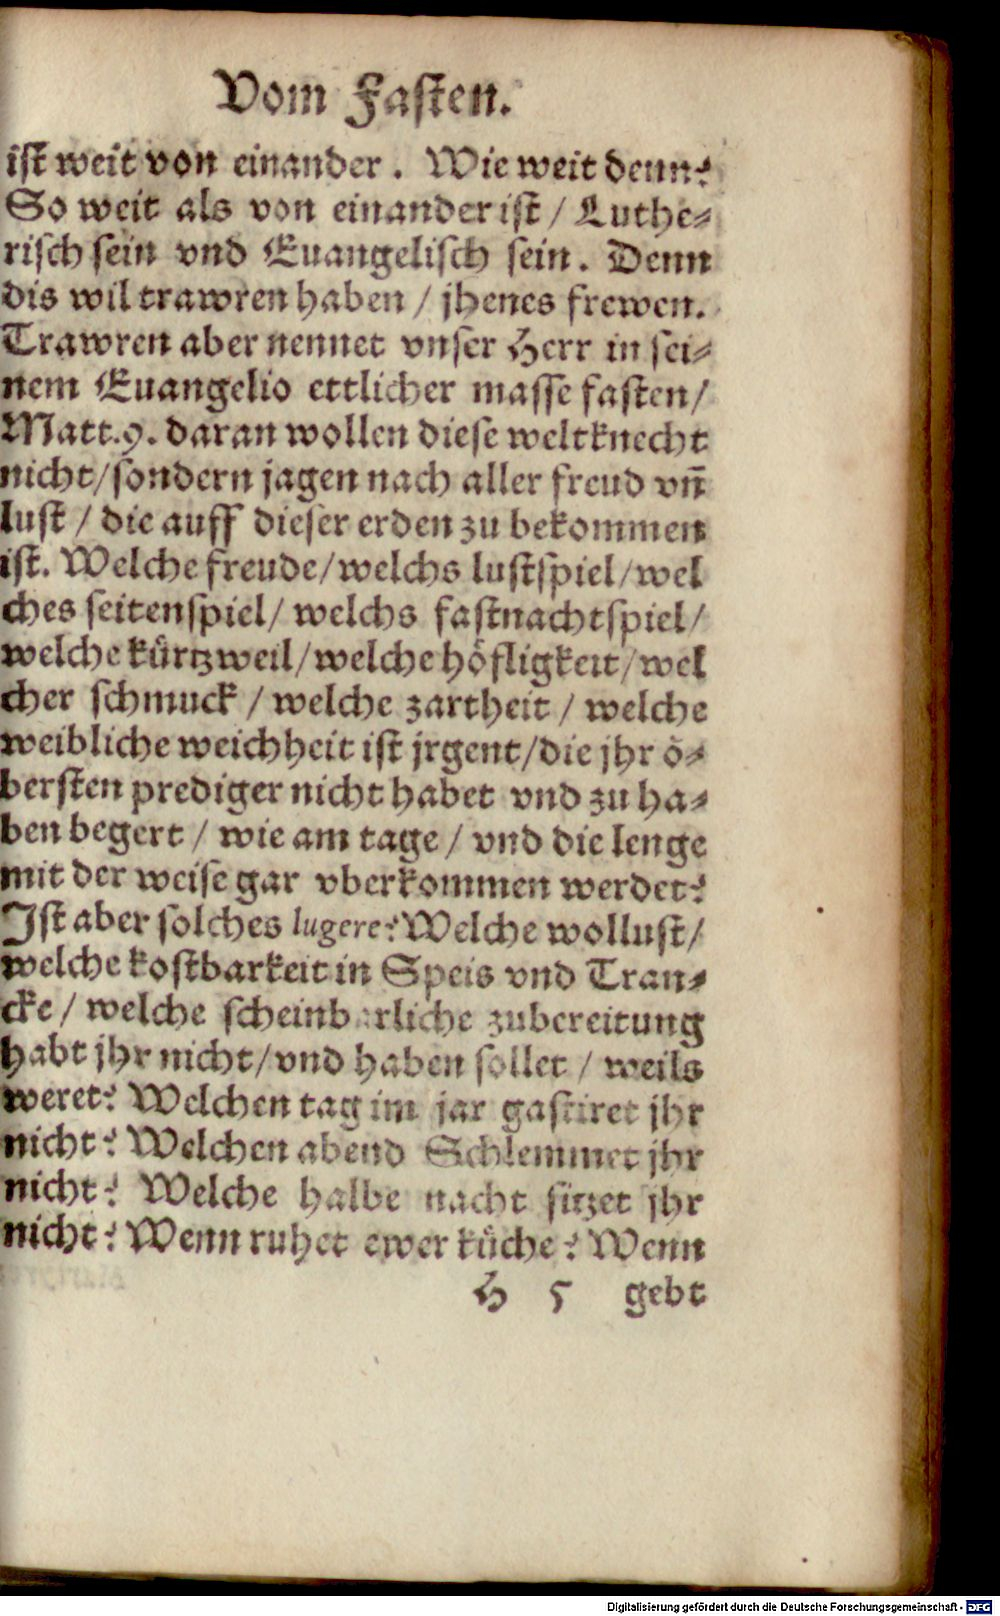 Vom Fasten.
ist weit von einander. Wie weit denn?
So weit als von einander ist / Luthe⸗
risch sein vnd Euangelisch sein. Denn
dis wil trawren haben / jhenes frewen.
Trawren aber nennet vnser Herr in sei⸗
nem Euangelio ettlicher masse fasten/
Matt.9. daran wollen diese weltknecht
nicht/sondern jagen nach aller freud vn̄
lust / die auff dieser erden zu bekommen
ist. Welche freude/welchs lustspiel/wel
ches seitenspiel/ welchs fastnachtspiel/
welche kürtzweil/welche höfligkeit/wel
cher schmuck / welche zartheit / welche
weibliche weichheit ist jrgent/die jhr ö⸗
bersten prediger nicht habet vnd zu ha⸗
ben begert / wie am tage / vnd die lenge
mit der weise gar vberkommen werdet?
Ist aber solches lugere? Welche wollust/
welche kostbarkeit in Speis vnd Tran⸗
cke / welche scheinbarliche zubereitung
habt jhr nicht/vnd haben sollet / weils
weret? Welchen tag im jar gastiret jhr
nicht? Welchen abend Schlemmet jhr
nicht? Welche halbe nacht sitzet jhr
nicht? Wenn ruhet ewer küche? Wenn
H 5 gebt
Digitalisierung gefördert durch die Deutsche Forschungsgemeinschaft - DFG